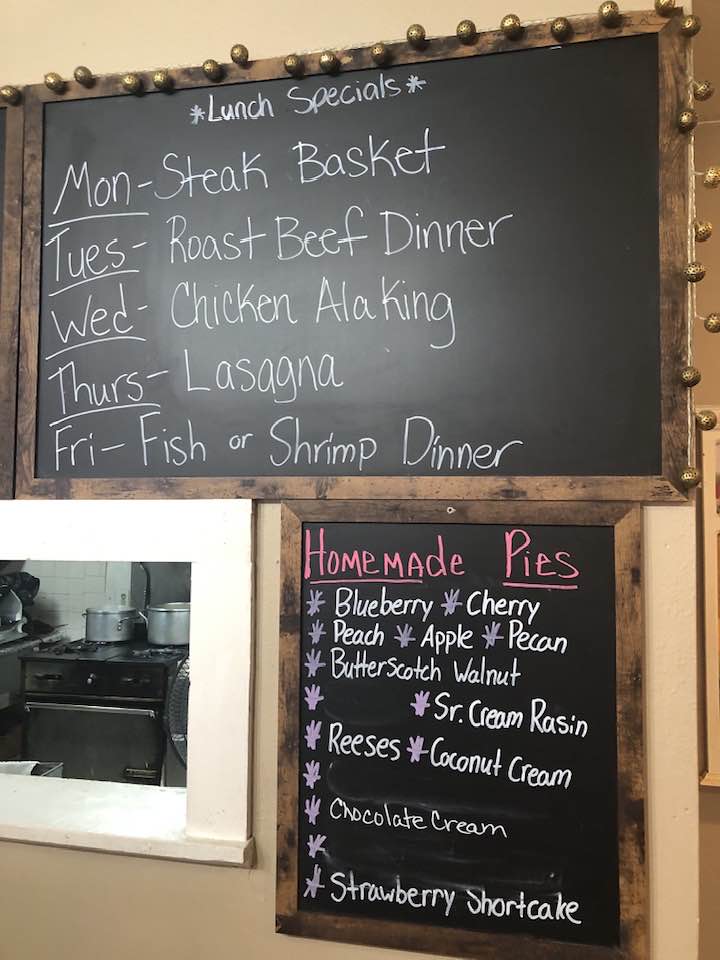 *Lunch Specials*
Mon-Steak Basket
Tues- Roast Beef Dinner
Wed- Chicken Ala King
Thurs- Lasagna
Fri- Fish or Shrimp Dinner
Homemade Pies
* Blueberry * Cherry
* Peach * Apple * Pecan
* Butterscotch Walnut
* * Sr. Cream Rasin
* Reeses * Coconut Cream
*
* Chocolate Cream
*
* Strawberry Shortcake